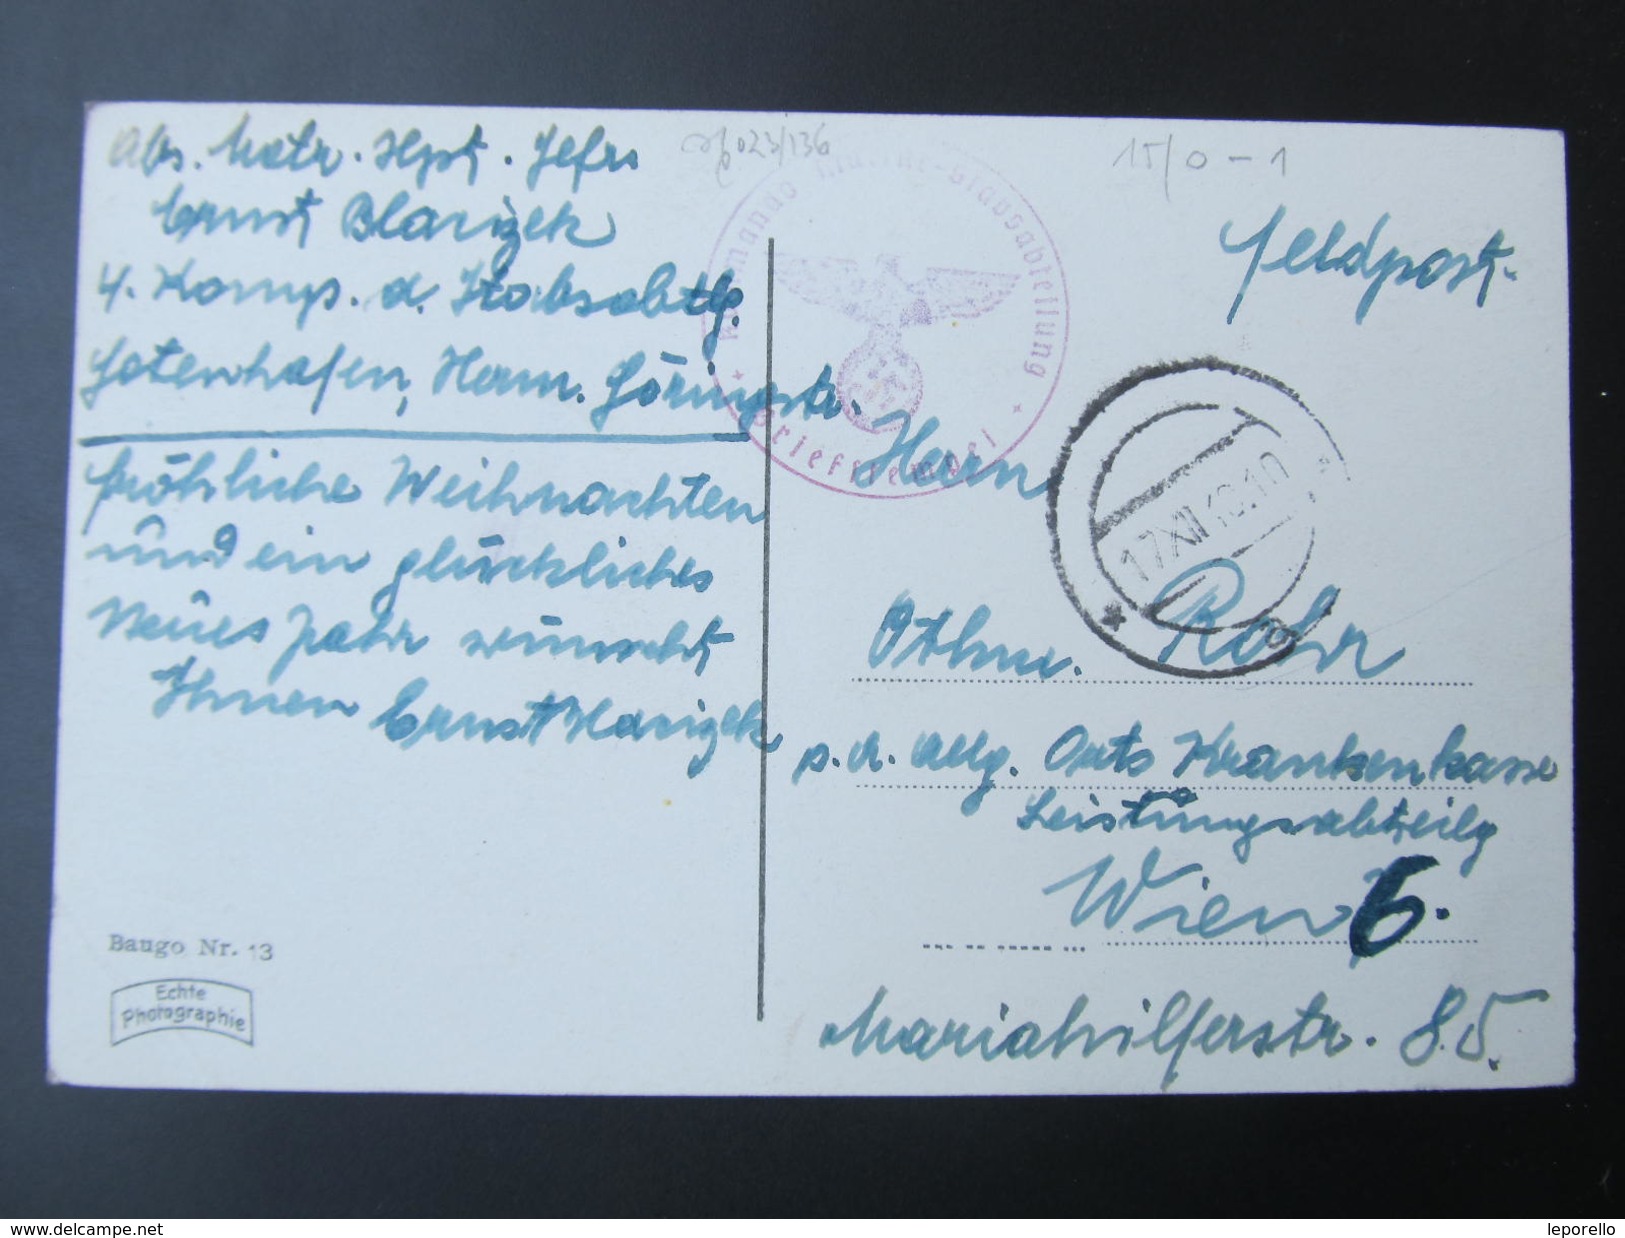 Abs. Matr. Hpt. Gefr.
Ernst Blarizek
4. Komp. d. Stabsabtlg.
Gotenhafen, Herm. Göringstr.
Fröhliche Weihnachten
und ein glückliches
Neues Jahr wünscht
Ihnen Ernst Blarizek
Baugo Nr. 13
Echte
Photographie
023/136
15/0-1
Kommando Marine-Stabsabteilung
Briefstempel
Feldpost.
17 XII
10
Herrn
Othm. Rohr
p. A. Allg. Orts Krankenkasse
Leistungsabteilg
Wien 6.
Mariahilferstr. 85.
delcampe.net
leporello